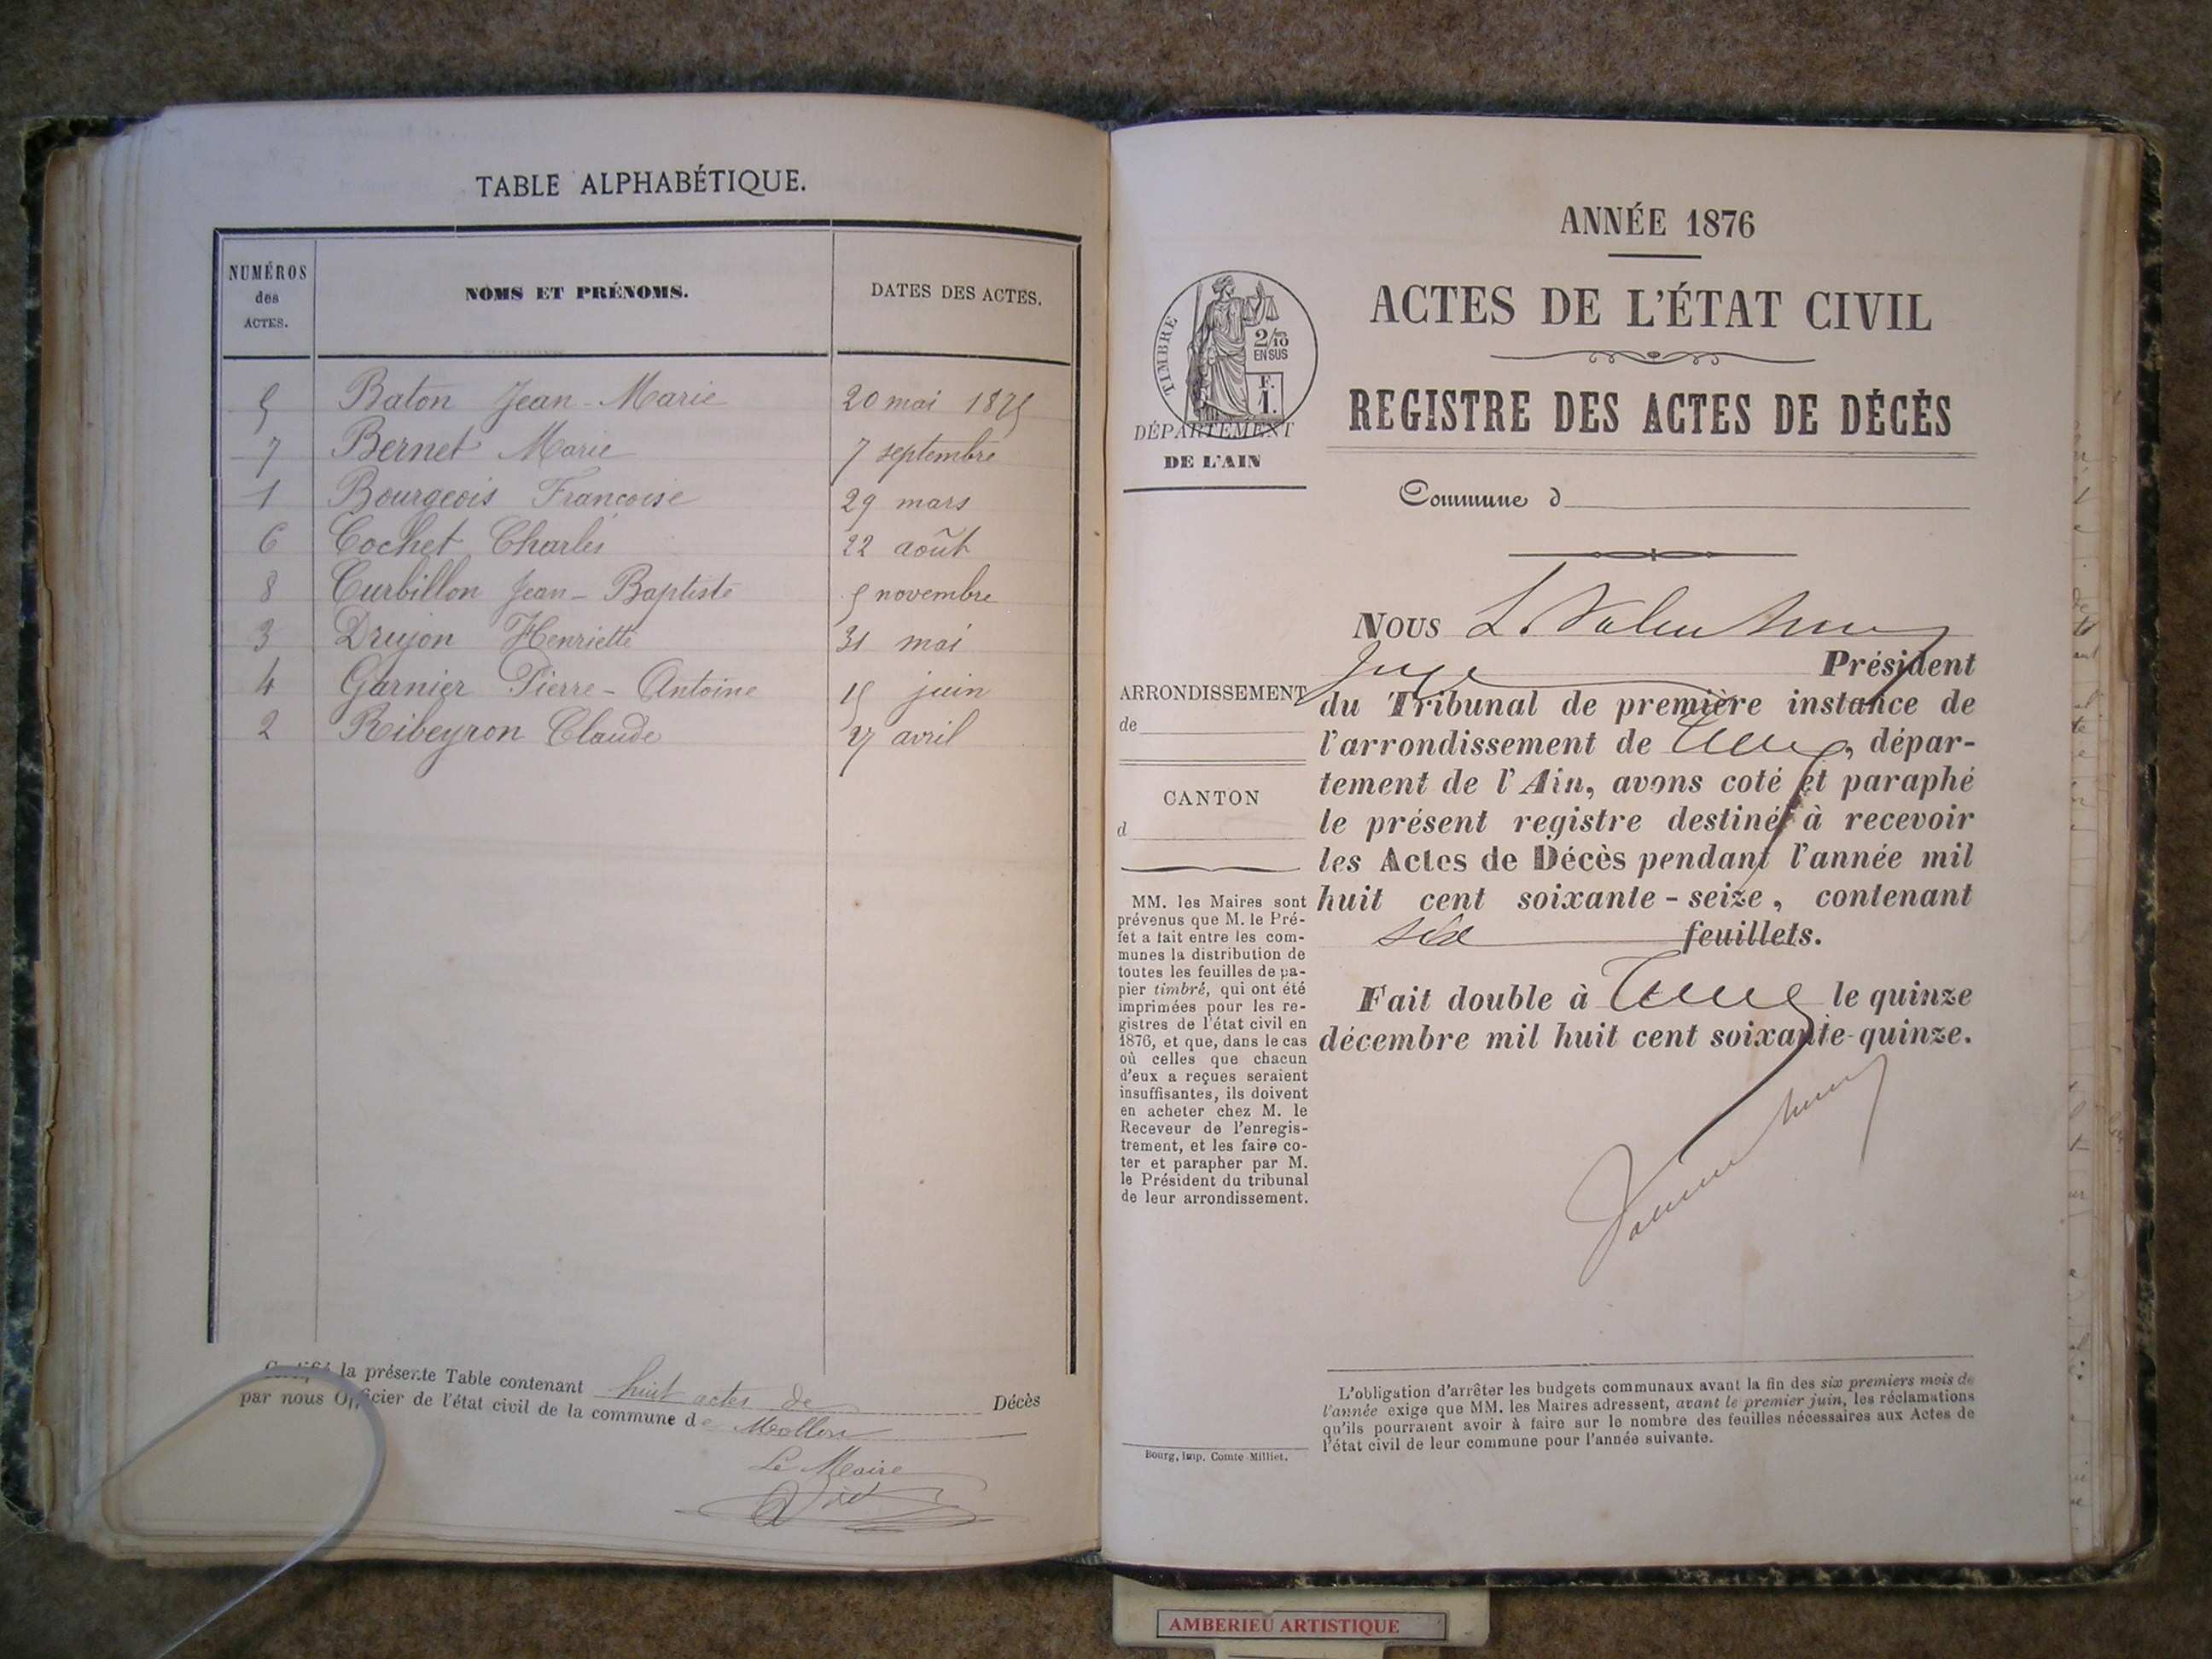 TABLE ALPHABÉTIQUE.
NUMÉROS
des
ACTES.
NOMS ET PRÉNOMS.
DATES DES ACTES.
5 Baton Jean-Marie 20 mai 1875
7 Bernet Marie 7 septembre
1 Bourgeois Françoise 29 mars
6 Cochet Charles 22 août
8 Curbillon Jean-Baptiste 5 novembre
3 Drujon Henriette 31 mai
4 Garnier Pierre-Antoine 15 juin
2 Ribeyron Claude 27 avril
Certifié la présente Table contenant huit actes de Décès
par nous Officier de l'état civil de la commune de Mollon
Le Maire
ANNÉE 1876
ACTES DE L'ÉTAT CIVIL
REGISTRE DES ACTES DE DÉCÈS
TIMBRE
2/10
EN SUS
F.
1.
DÉPARTEMENT
DE L'AIN
Commune d
ARRONDISSEMENT
de
CANTON
d
MM. les Maires sont
prévenus que M. le Pré-
fet a fait entre les com-
munes la distribution de
toutes les feuilles de pa-
pier timbré, qui ont été
imprimées pour les re-
gistres de l'état civil en
1876, et que, dans le cas
où celles que chacun
d'eux a reçues seraient
insuffisantes, ils doivent
en acheter chez M. le
Receveur de l'enregis-
trement, et les faire co-
ter et parapher par M.
le Président du tribunal
de leur arrondissement.
Bourg, imp. Comte-Milliet.
Nous L.
Juge Président
du Tribunal de première instance de
l'arrondissement de dépar-
tement de l'Ain, avons coté et paraphé
le présent registre destiné à recevoir
les Actes de Décès pendant l'année mil
huit cent soixante-seize, contenant
six feuillets.
Fait double à le quinze
décembre mil huit cent soixante-quinze.
L'obligation d'arrêter les budgets communaux avant la fin des six premiers mois de
l'année exige que MM. les Maires adressent, avant le premier juin, les réclamations
qu'ils pourraient avoir à faire sur le nombre des feuilles nécessaires aux Actes de
l'état civil de leur commune pour l'année suivante.
AMBERIEU ARTISTIQUE